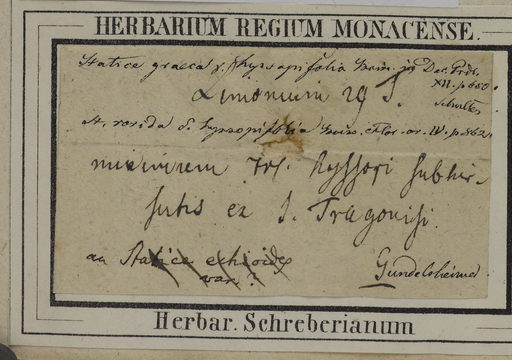 HERBARIUM REGIUM MONACENSE.
Statice graeca γ. hyssopifolia Boiss. in Dec. Prdr.
XII. p. 650.
Schultes
Limonium 29 T.
St. rorida δ. hyssopifolia Boiss. Flor. or. IV. p. 862.
minimum fol. Hyssopi subhir-
sutis ex I. Tragonisi.
an Statice echioides
var.?
Gundelsheimer
Herbar. Schreberianum